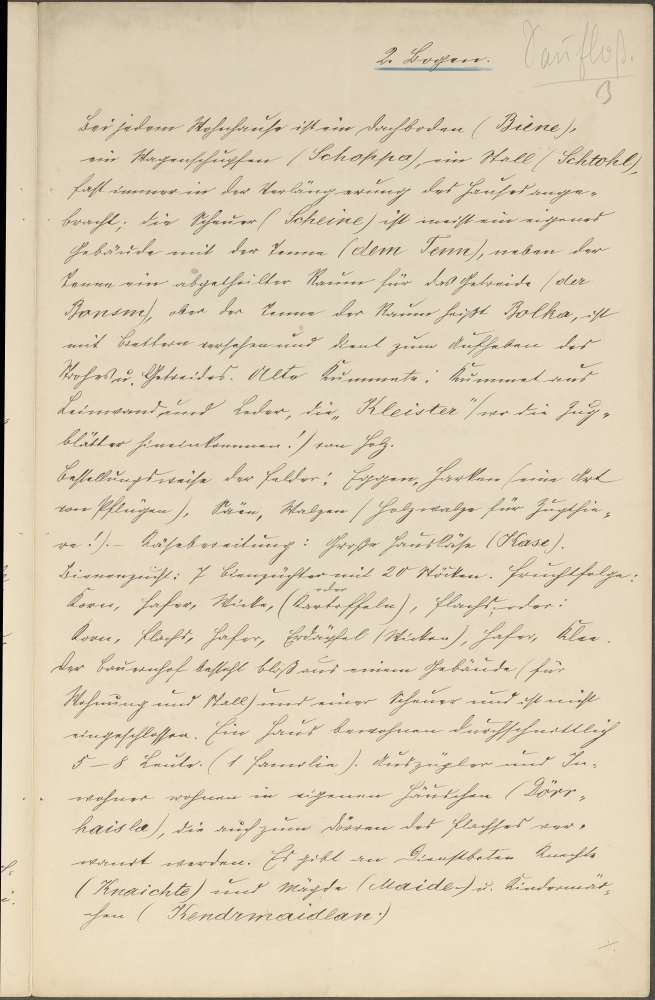 2. Bogen.
3
Bei jedem Wohnhause ist ein Dachboden (Biene),
ein Wagenschupfen (Schoppa), ein Stall (Schtohl),
fast immer in der Verlängerung des Hauses ange-
bracht; die Scheuer (Scheine) ist meist ein eigenes
Gebäude mit der Tenne (dem Tenn), neben der
Tenne ein abgetheilter Raum für das Getreide (der
Bansm), ober der Tenne der Raum heißt Bolka, ist
mit Brettern versehen und dient zum Aufheben des
Strohes u. Getreides. Alte Kummete: Kummet aus
Leinwand und Leder, die "Kleister" (wo die Zug-
blätter hineinkommen!) von Holz.
Bestellungsweise der Felder: Eggen, Harken (eine Art
von Pflügen), Säen, Walzen (Holzwalze für Zugthie-
re!). – Käsebereitung: Große Hauskäse (Kase).
Bienenzucht: 7 Bienenzüchter mit 20 Stöcken. Fruchtfolge:
Korn, Hafer, Wicke, (oder Kartoffeln), Flachs, oder:
Korn, Flachs, Hafer, Erdäpfel (Wicken), Hafer, Klee.
Der Bauernhof besteht bloß aus einem Gebäude (für
Wohnung und Stall) und einer Scheuer und ist nicht
eingeschlossen. Ein Haus bewohnen durchschnittlich
5 – 8 Leute. (1 Familie). Auszügler und In-
wohner wohnen in eigenen Häuschen (Dörr-
haisla), die auch zum Dörren des Flachses ver-
wandt werden. Es gibt an Dienstboten Knechte
(Knaichte) und Mägde (Maide) u. Kindermäd-
chen (Kendrmaidlan.)